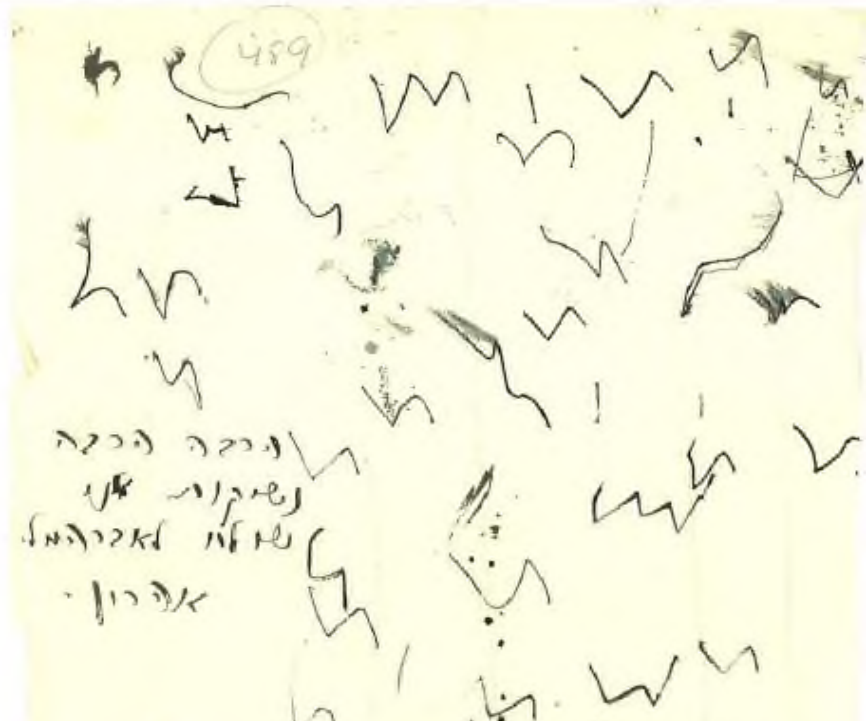 489
הרבה הרבה
נשיקות אני
לאברהמל.
אהרון -